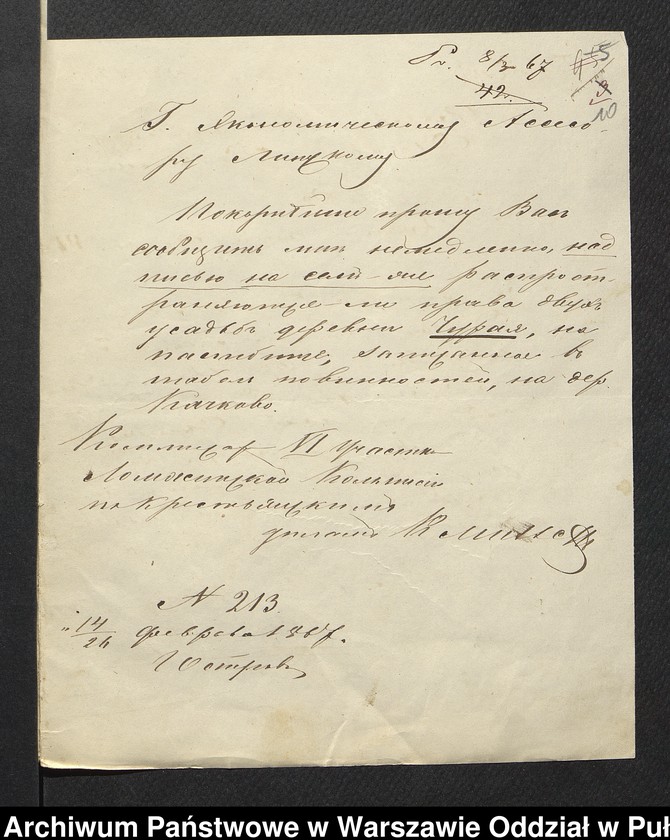 Pr. 8/3 67
42.
10
Г. Экономическому Асесо-
ру Липскому
Покорнейше прошу Вас
сообщить мне немедленно, над
писью на сем-же распрост
раняются-ли права двухъ
усадьбъ деревни Чурая, на
пастбище, записанное въ
табели повинностей, на дер.
Клячково.
Коммисар VI участка
Ломжинской Коммисіи
по крестьянскимъ
деламъ
N 213
14/26 февраля 1867.
г Остров
Archiwum Państwowe w Warszawie Oddział w Puł